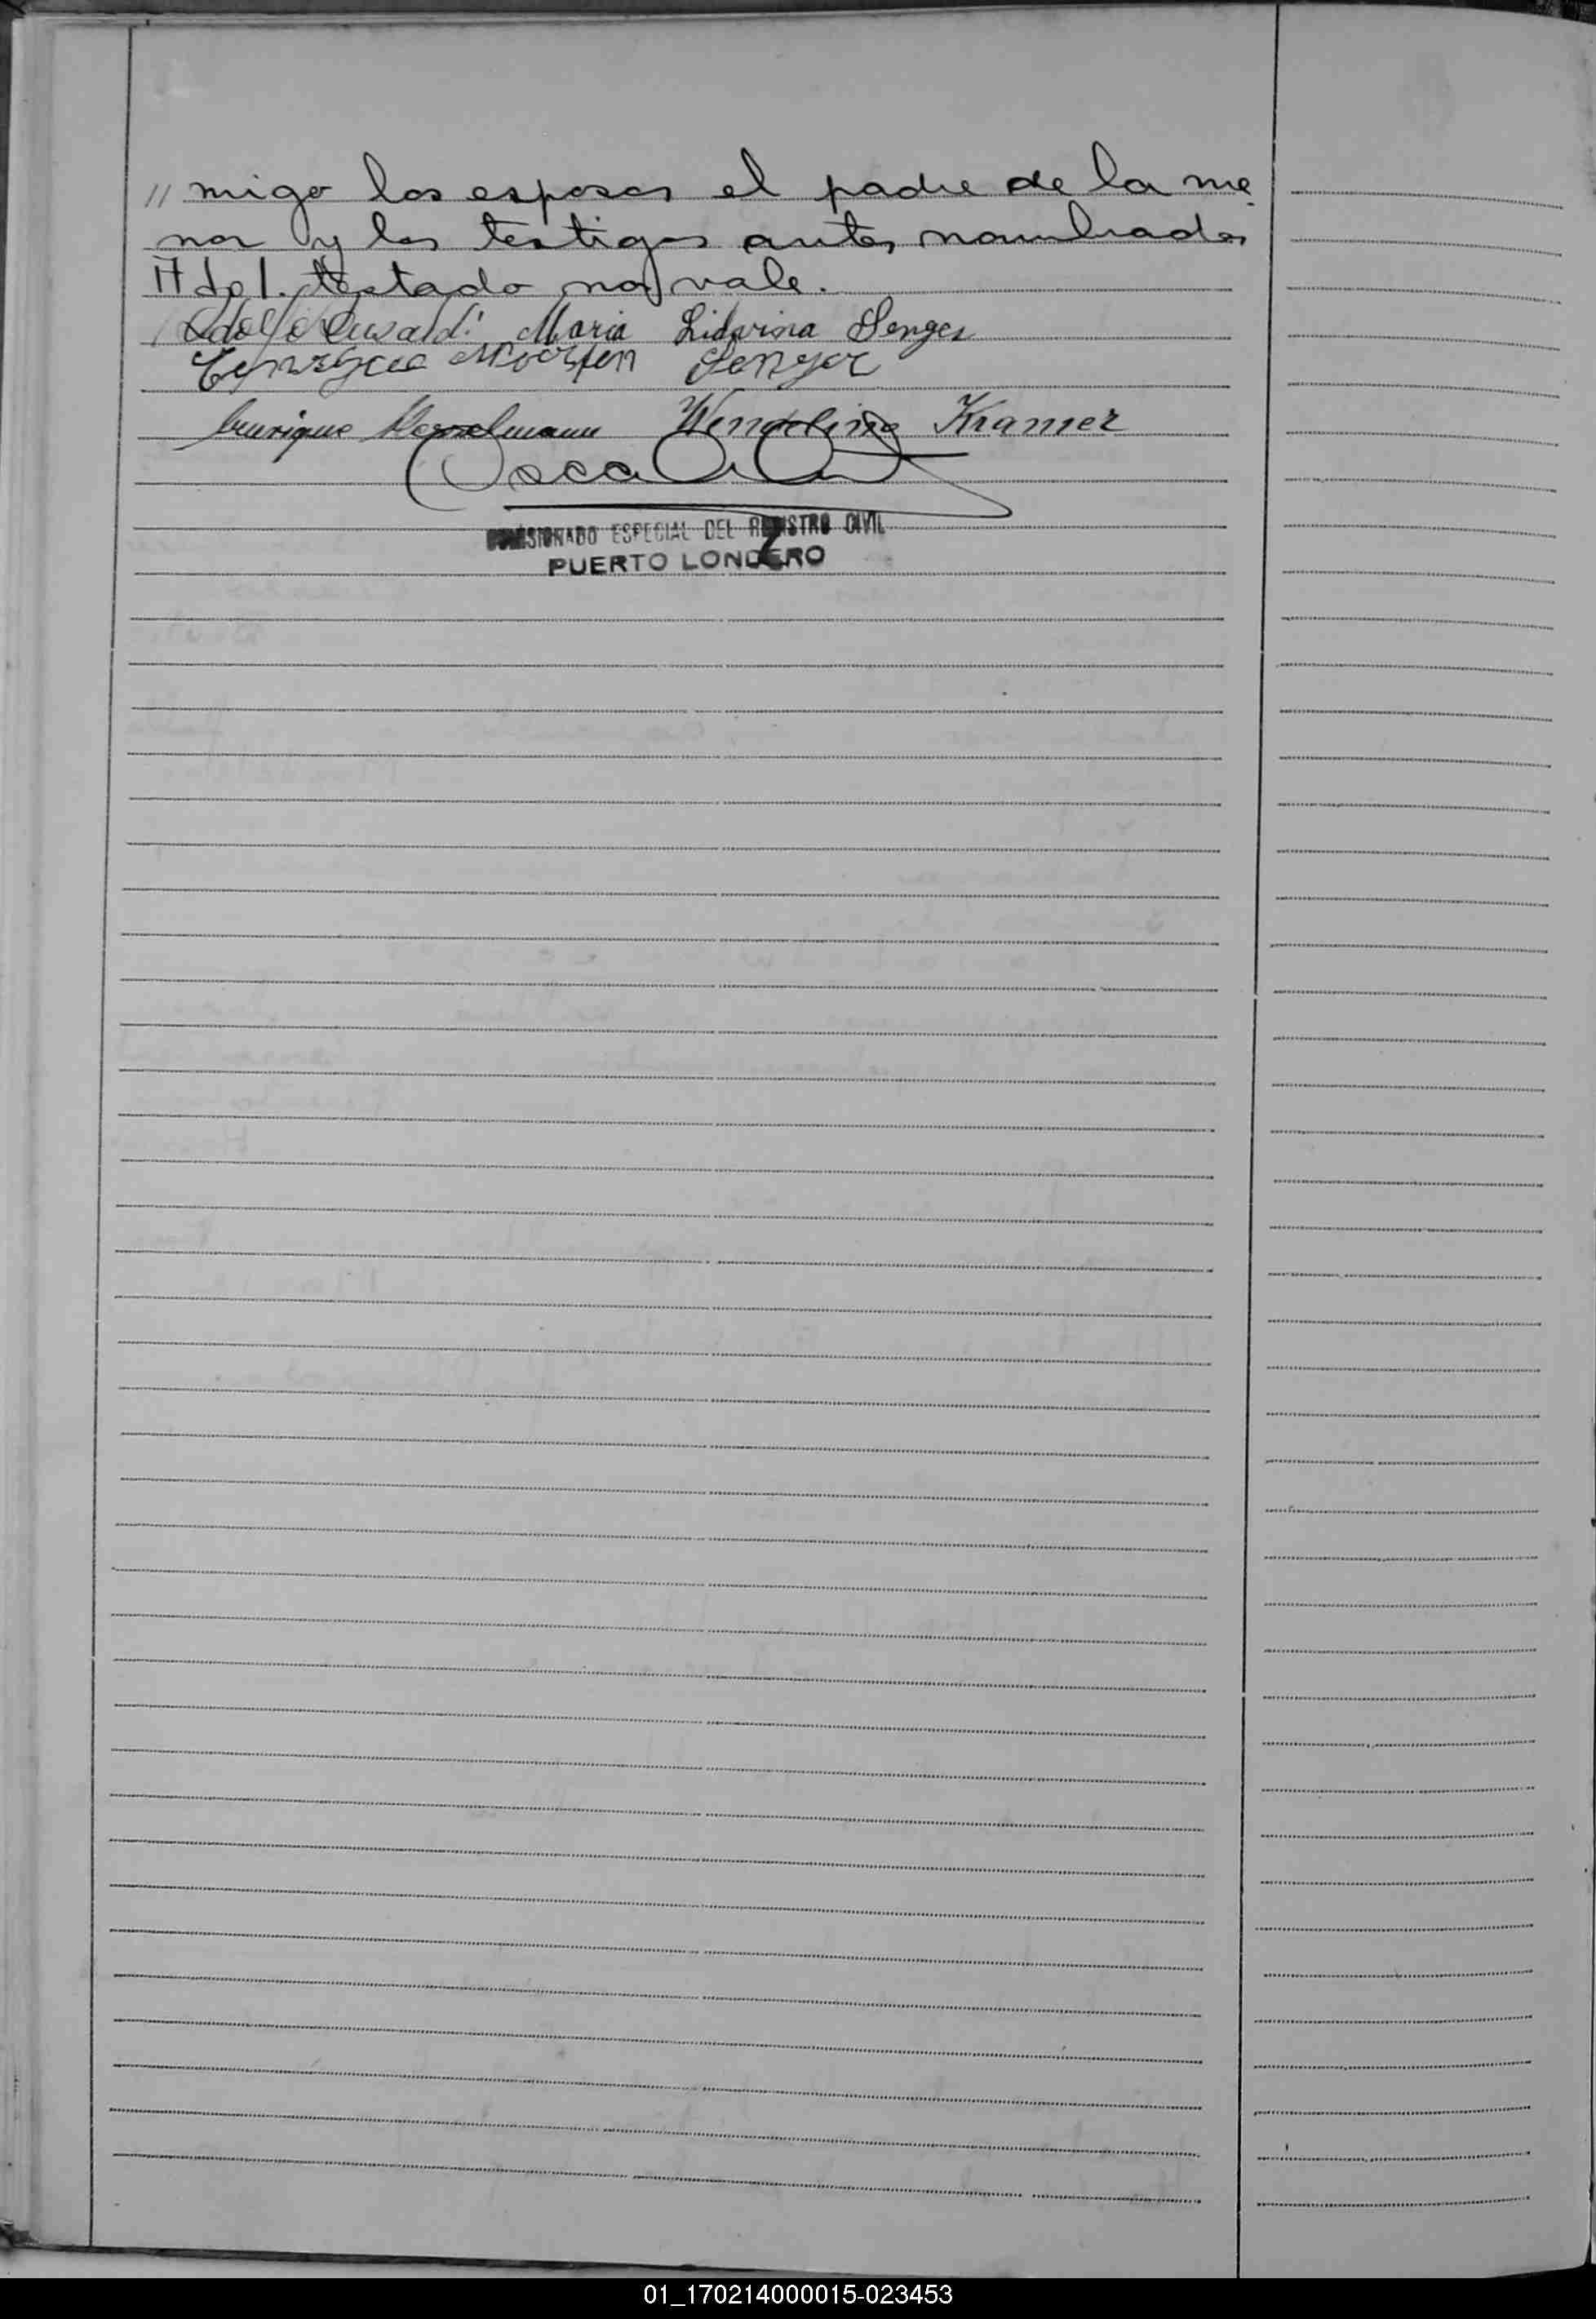 // migo los esposos el padre de la me
nor y los testigos antes nombrados
testado no vale.
Adolfo Maria Lidvina Senger
Senger
Enrique Wendelino Kramer
Oscar
COMISIONADO ESPECIAL DEL REGISTRO CIVIL
PUERTO LONDERO
01_170214000015-023453